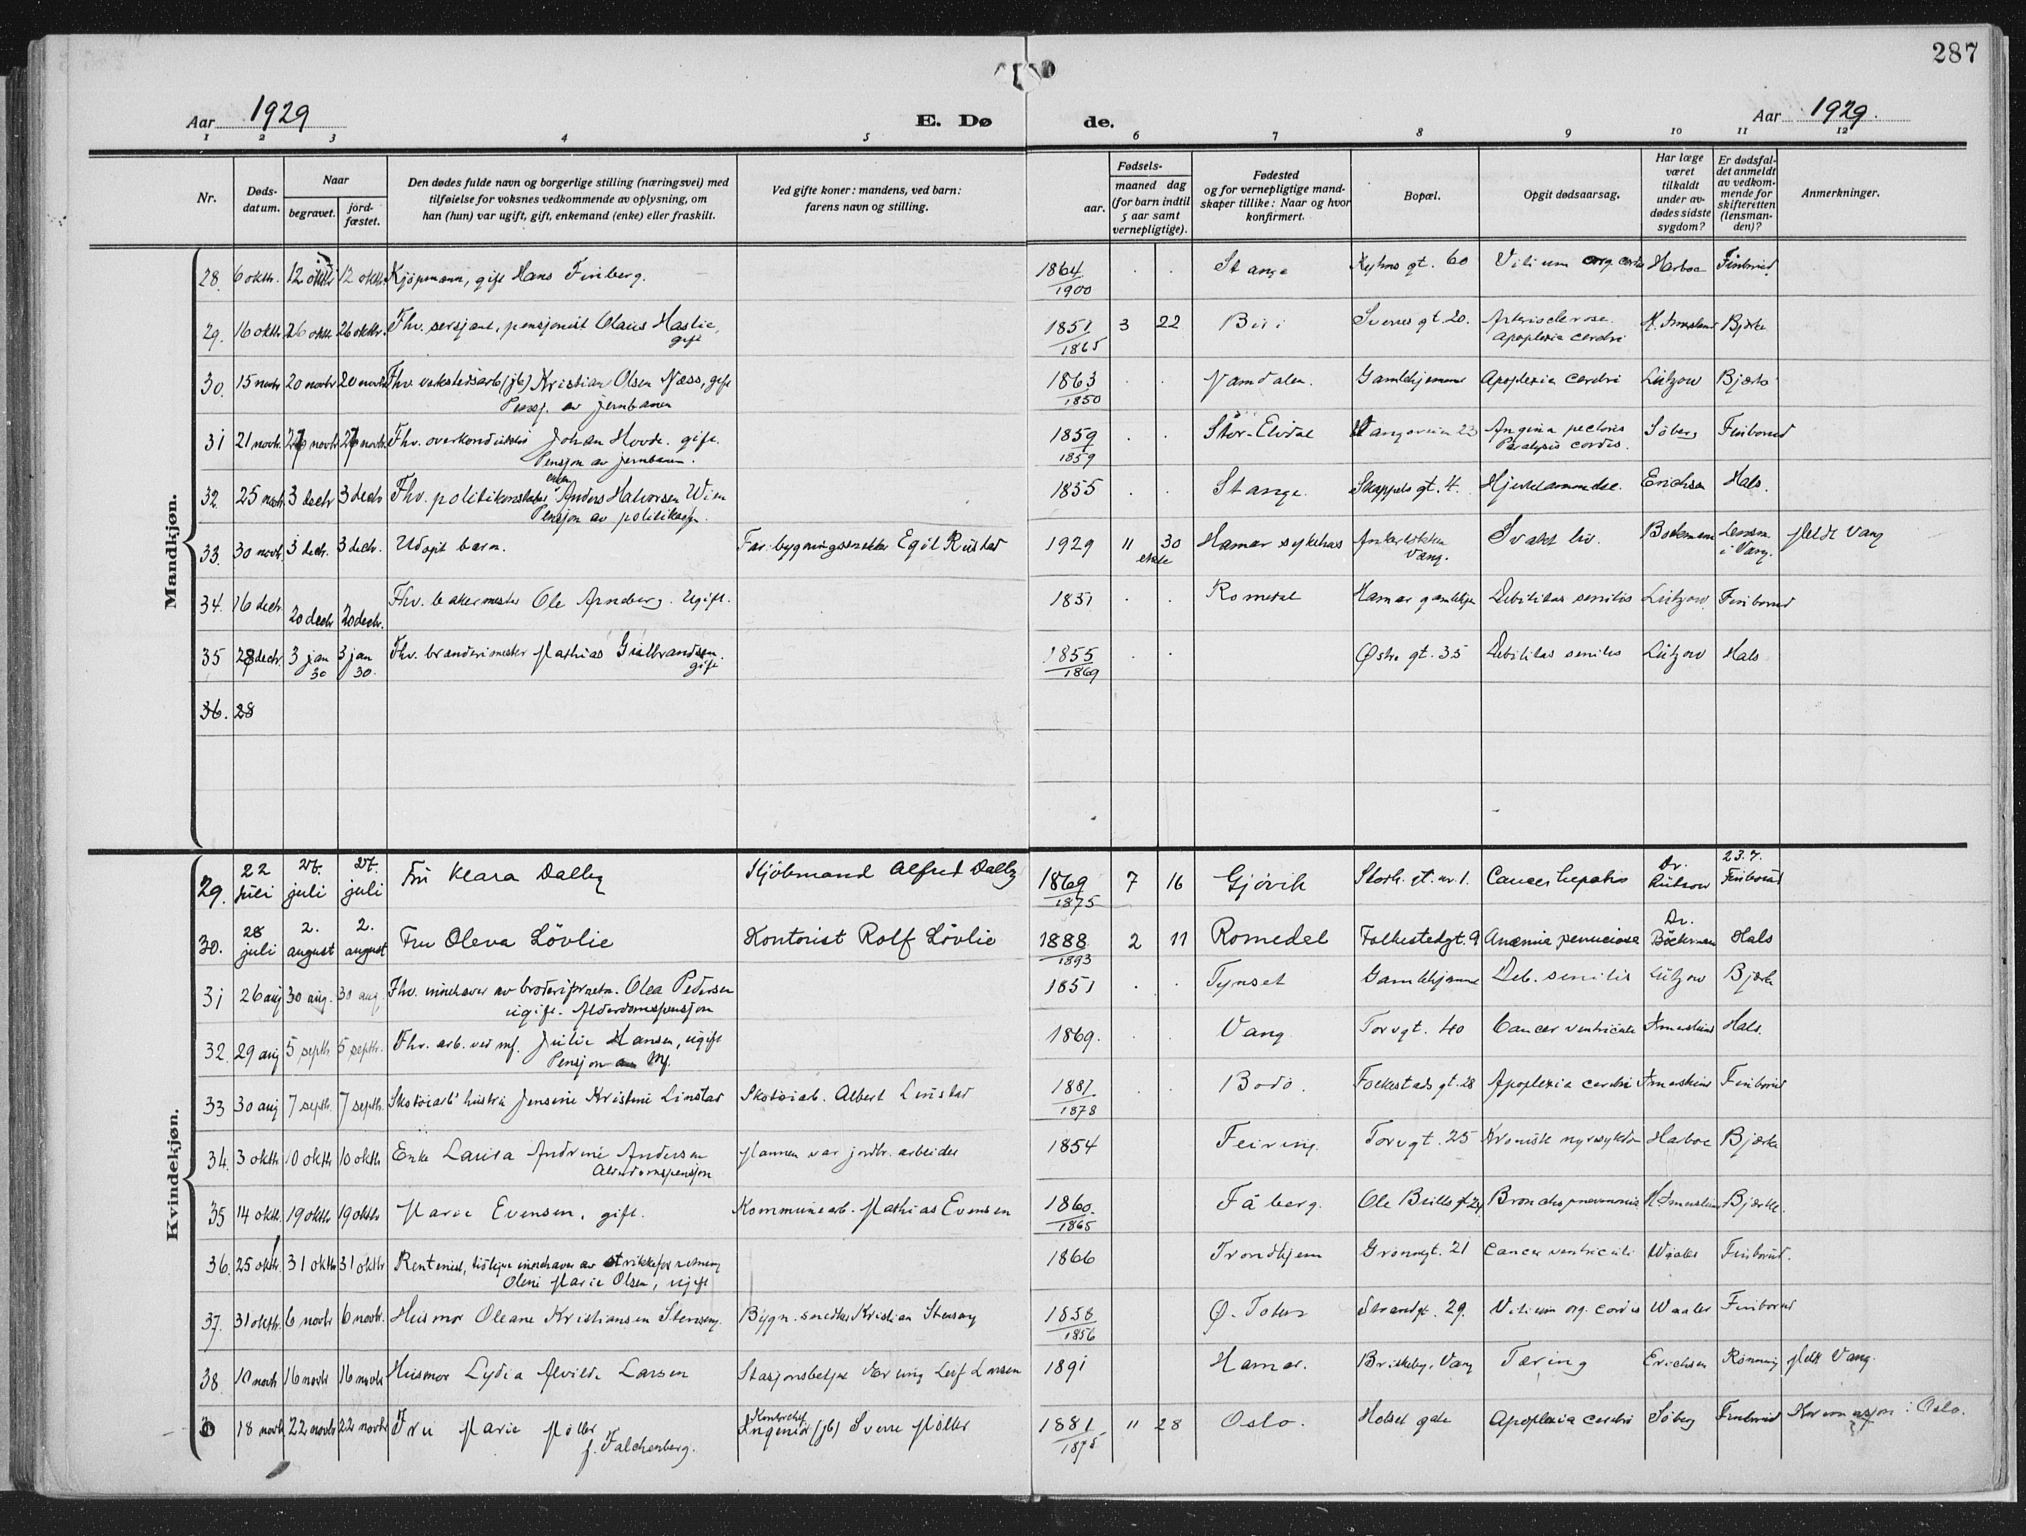 287
Aar 1929 E. Dø de. Aar 1929.
1 2 3 4 5 6 7 8 9 10 11 12
Nr.
Døds-
datum.
Naar
begravet.
jord-
fæstet.
Den dødes fulde navn og borgerlige stilling (næringsvei) med
tilføielse for voksnes vedkommende av oplysning, om
han (hun) var ugift, gift, enkemand (enke) eller fraskilt.
Ved gifte koner: mandens, ved barn:
farens navn og stilling.
Fødsels-
aar.
maaned dag
(for barn indtil
5 aar samt
vernepligtige).
Fødested
og for vernepligtige mand-
skaper tillike: Naar og hvor
konfirmert.
Bopæl.
Opgit dødsaarsag.
Har læge
været
tilkaldt
under av-
dødes sidste
sygdom?
Er dødsfal-
det anmeldt
av vedkom-
mende for
skifteretten
(lensman-
den)?
Anmerkninger.
Mandkjøn.
28. 6 oktb. 12 oktb 12 oktb Kjøpmann, gift Hans Finberg. 1864 . . Stange gt. 60 Vitium org. cordis Harboe Finborud
1900
29. 16 oktb. 26 oktb 26 oktbr. Fhv. sersjant, pensjonist Olaus Haslie, 1851 3 22 Biri Sverres gt. 20. Arteriosclerose. Bjerke
gift 1865 apoplexia cerebri
30. 15 novbr 20 novbr 20 novbr Fhv. verkstedsarb (jb) Kristian Olsen Næss, gift 1863 . . Namdalen. Gamlehjemmet Apoplexia cerebri Lützow Bjerke
Pensj. av jernbanen 1850
31 21 novbr. novbr novbr. Fhv. overkonduktør Johan Hovde. gift. 1859 . . Stor-Elvdal 23 Angina pectoris Søberg Finborud
Pensjon av jernbanen. 1859 Paralysis cordis.
32. 25 novb. 3 decbr 3 decbr Fhv. politikonstabel Anders Halvorsen Wien 1855 . . Stange. Skappels gt. 4. Hjertelammelse. Erichsen Hals.
enkem.
Pensjon av politikassen.
33. 30 novb. 3 decbr. 3 decbr. Udøpt barn. Far: bygningssnekker Egil Rustad 1929 11 30 Hamar sykehus Ankerløkken Svakt liv. Bockmann Lensm. Meldt Vang
ekte Vang. i Vang.
34. 16 decbr. 20 decbr 20 decbr. Fhv. bakermester Ole Arneberg. Ugift. 1831 . . Romedal Hamar gamlehje Debilitas senilis Lützow. Finborud
35 28 decbr. 3 jan 3 jan Fhv. brænderimester Mathias Gulbrandsen. 1855 . . Østre gt. 35 Debilitas senilis Lützow Hals
30 30. gift 1869
36. 28
Kvindekjøn.
29. 22 juli 27. juli 27. juli Fru Klara Dalby Kjøbmand Alfred Dalby 1869 7 16 Gjøvik Storh. gt. nr. 1. Cancer hepatis Dr. Lützow 23.7. Finborud
1875
30. 28 juli 2. august 2. august Fru Oleva Løvlie Kontorist Rolf Løvlie 1888 2 11 Romedal Folkestedgt. 9 Anæmia perniciosa Dr. Böckman Hals
1893
31 26 aug 30 aug. 30 aug. Fhv. innehaver av broderiforretn. Olea Pedersen 1851 . . Tynset Gamlehjemmet Deb. senilis Lützow Bjerke
ugift. Alderdomspensjon
32. 29 aug 5 septb 5 septbr. Fhv. arb. ved mf. Julie Hansen, ugift 1869. . . Vang Torvgt. 40 Cancer ventriculi Hals.
Pensjon av Mf.
33 30 aug 7 septb. 7 septbr. Skotøiarb' hustru Jensine Kristine Linstad Skotøiarb. Albert Linstad 1881 . . Bodø. Folkestads gt. 28 Apoplexia cerebri Finborud
1878
34. 3 oktb 10 oktb 10 oktb Enke Laura Andrine Andersen Mannen var jordbr. arbeider 1854 Feiring. Torvgt. 25 Kronisk nyresykdom Haboe Bjerke
Alderdomspensjon
35 14 oktb. 19 oktb 19 oktb Marie Evensen, gift. Kommunearb. Mathias Evensen 1860. Fåberg. Ole Bulls gt 24 Bronchopneumonia Bjerke.
1865
36. 25 oktb. 31 oktb 31 oktb Rentenist, tidligere innehaver av strikkeforretning 1866 Trondhjem Grønnegt. 21 Cancer ventriculi Waaler Finborud.
Oline Marie Olsen, ugift
37. 31 oktb. 6 novbr 6 novbr. Husmor Oleane Kristiansen Stenseng. Bygn. snedker Kristian Stenseng 1858 Ø. Toten Strandgt. 29. Vitium org. cordis Waaler Finborud
1856
38. 10 novb 16 novbr 16 novbr Husmor Lydia Alvilde Larsen Stasjonsbetjent Erling Leif Larsen 1891 Hamar. Briskeby, Vang Tæring Erichsen Rønning Meldt Vang.
18 novb 22 novbr 22 novbr Fru Marie Møller Kontorchef Ingeniør (jb) Sverre Møller 1881 11 28 Oslo. Holset gate Apoplexia cerebri Søberg Finborud Kremasjon i Oslo.
f. Falchenberg. 1875